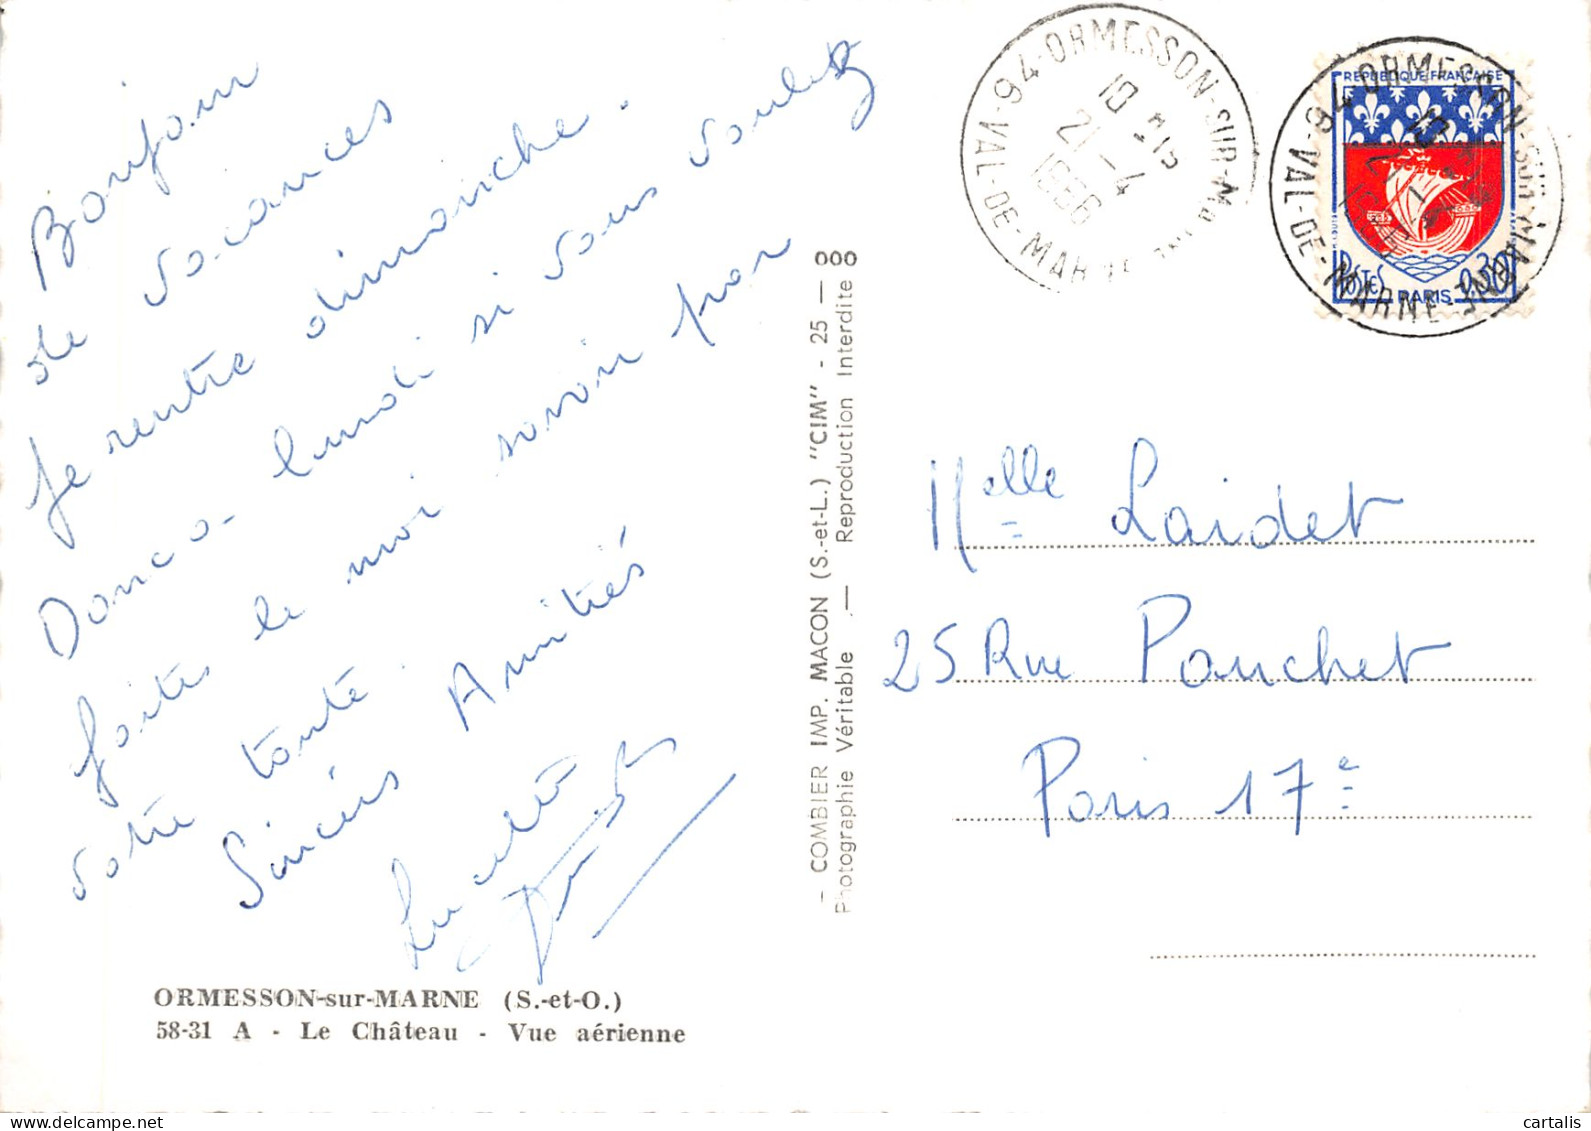 Bonjour
de vacances
je rentre dimanche.
Donc - lundi si vous voulez
faites le moi savoir par
votre tante.
Sincères Amitiés
ORMESSON-sur-MARNE (S.-et-O.)
58-31 A - Le Château - Vue aérienne
— COMBIER IMP. MACON (S.-et-L.) "CIM" - 25 —
Photographie Véritable — Reproduction Interdite
000
94-ORMESSON-SUR-MARNE
VAL-DE-MARNE
10 H 15
21 - 4
1966
RÉPUBLIQUE FRANÇAISE
POSTES 0,30
PARIS
94-ORMESSON-SUR-MARNE
VAL-DE-MARNE
Melle Laidet
25 Rue Pouchet
Paris 17e
cartalis